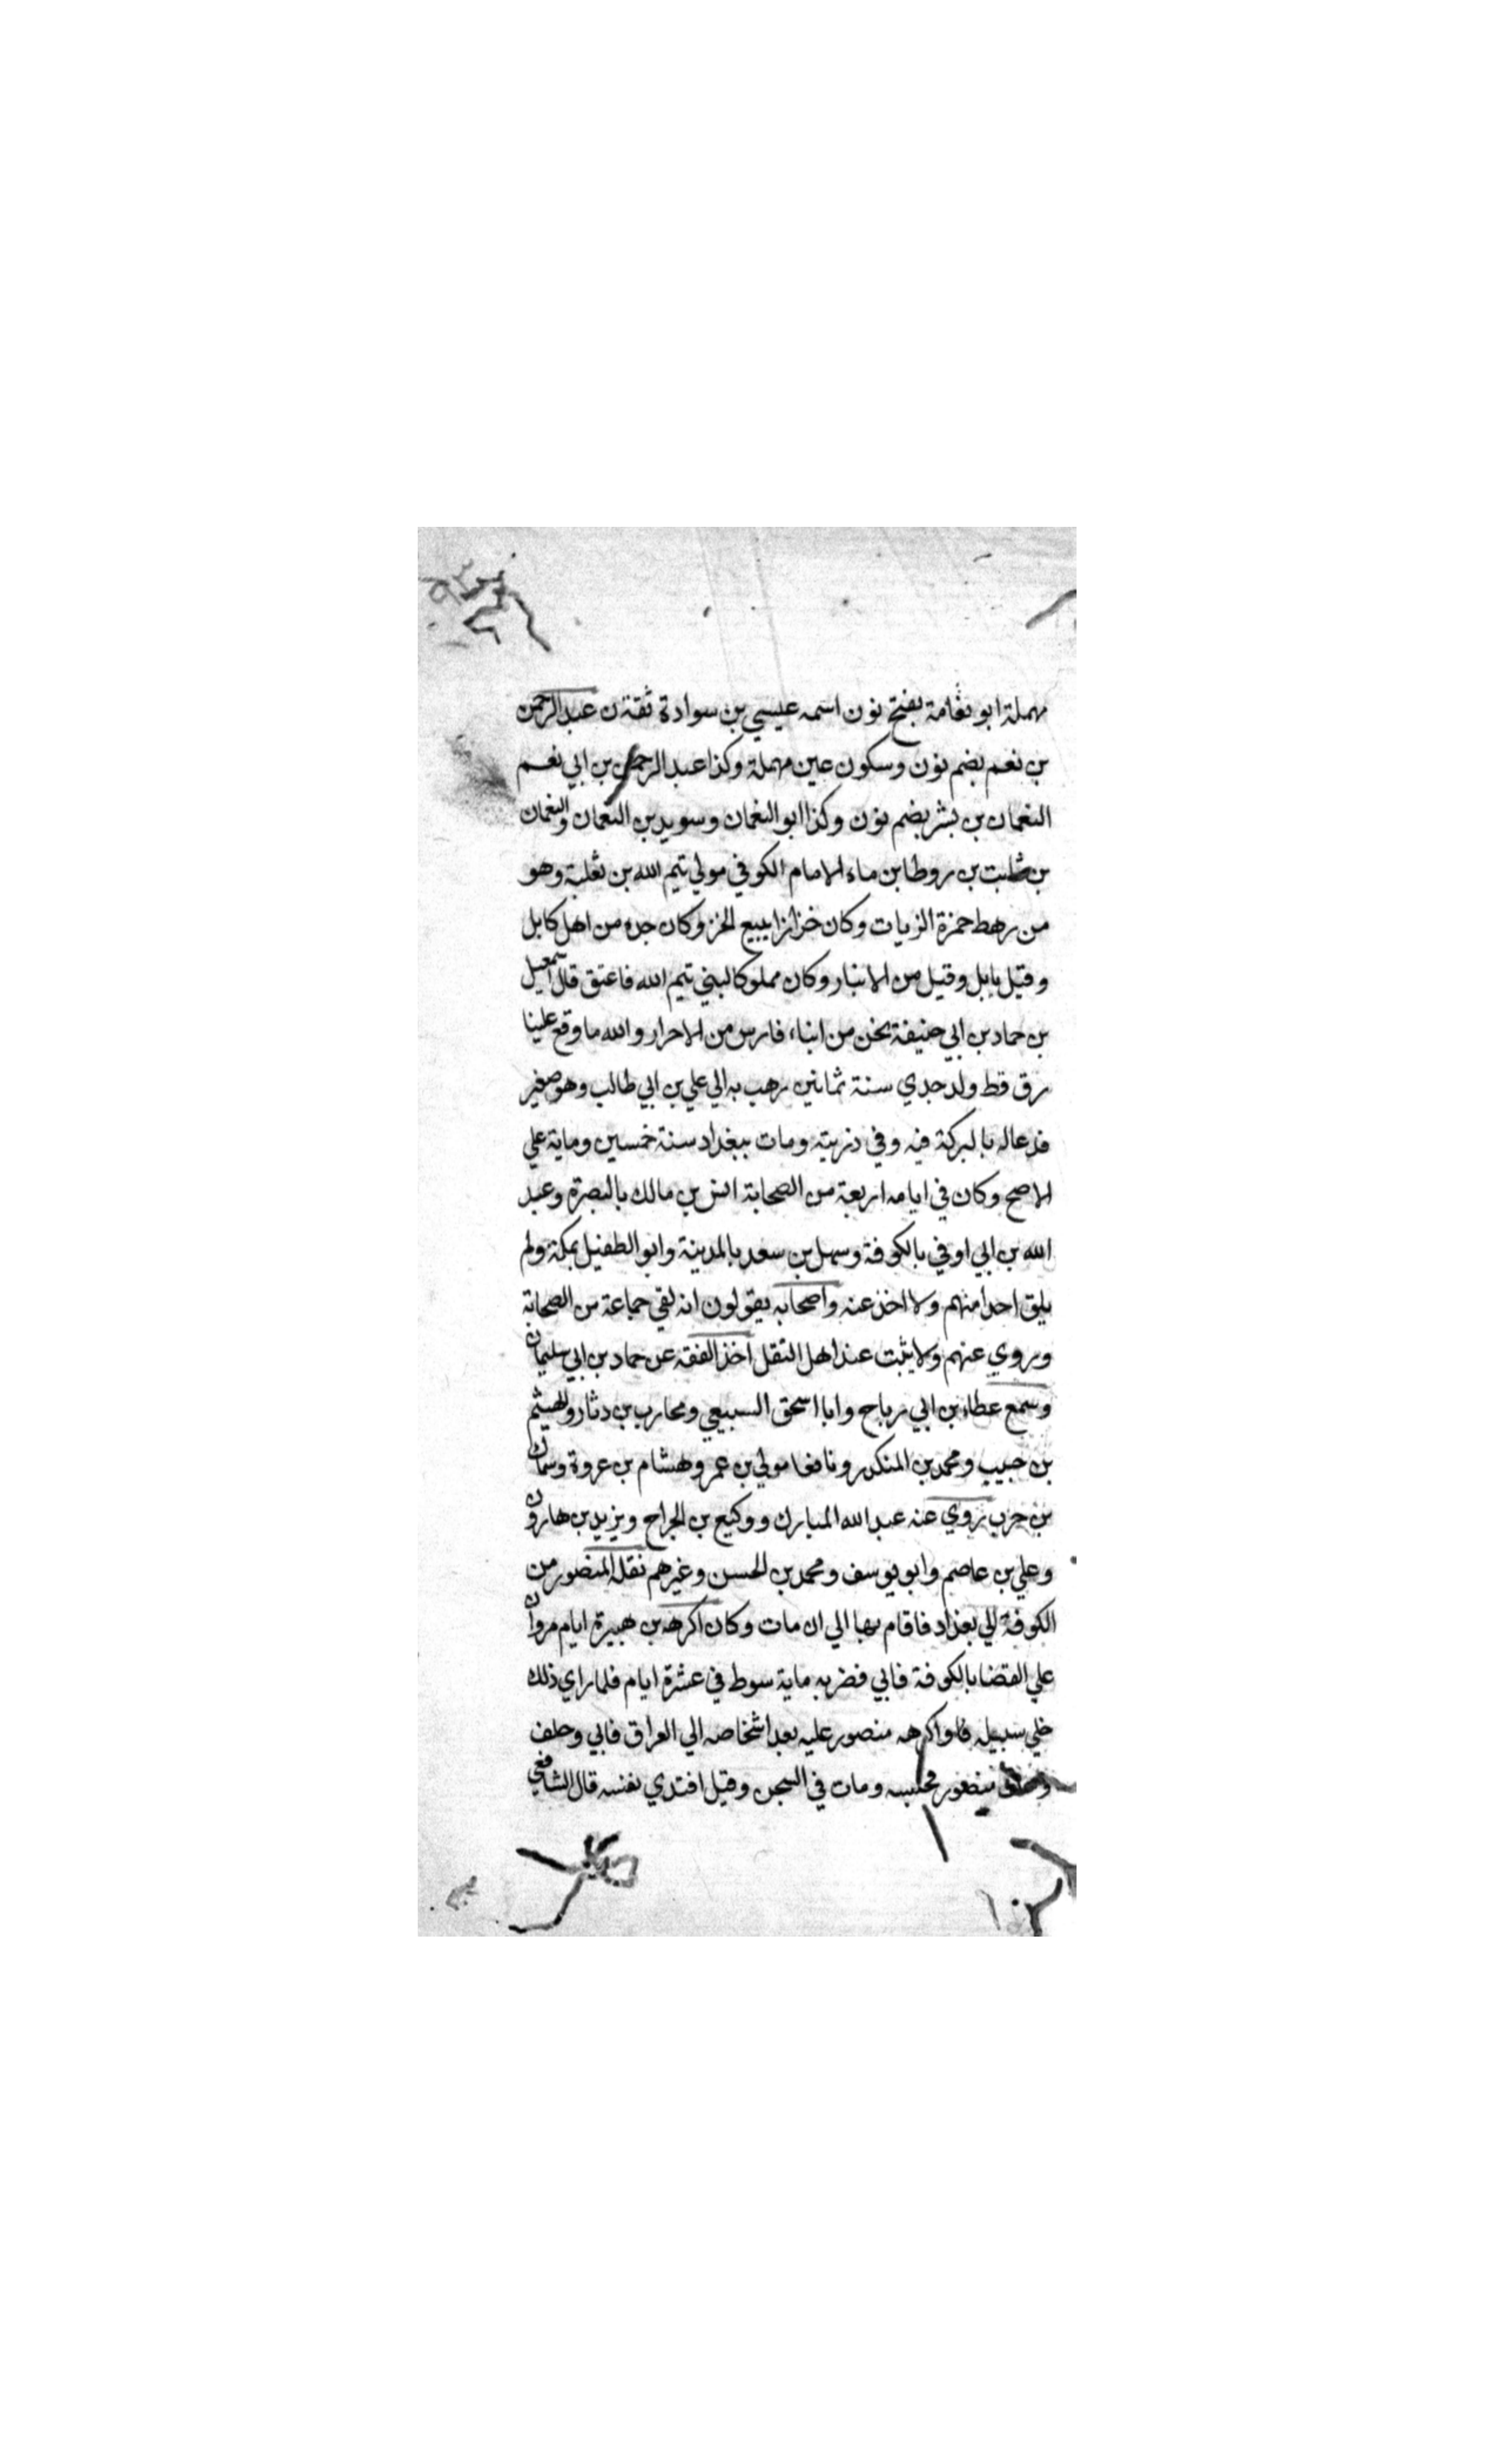 مهملة ابو نعامة بفتح نون اسمه عيسي بن سوادة ثقة ن عبد الرحمن
بن نعم بضم نون وسكون عين مهملة وكذا عبد الرحمن بن ابي نعم
النعمان بن بشر بضم نون وكذا ابو النعمان وسويد بن النعمان والنعمان
بن ثابت بن زوطا بن ماء الامام الكوفي مولي تيم الله بن ثعلبة وهو
من رهط حمزة الزيات وكان خزازا يبيع الخز وكان جده من اهل كابل
وقيل بابل وقيل من الانبار وكان مملوكا لبني تيم الله فاعتق قال اسمعيل
بن حماد بن ابي حنيفة نحن من ابناء فارس من الاحرار والله ما وقع علينا
رق قط ولد جدي سنة ثمانين رهب به الي علي بن ابي طالب وهو صغير
فدعاله بالبركة فيه وفي ذريته ومات ببغداد سنة خمسين وماية علي
الاصح وكان في ايامه اربعة من الصحابة انس بن مالك بالبصرة وعبد
الله بن ابي اوفي بالكوفة وسهل بن سعد بالمدينة وابو الطفيل بمكة ولم
يلق احدا منهم ولا اخذ عنه واصحابه يقولون انه لقي جماعة من الصحابة
وروي عنهم ولا يثبت عند اهل النقل اخذ الفقه عن حماد بن ابي سليمان
وسمع عطاء بن ابي رباح وابا اسحق السبيعي ومحارب بن دثار والهيثم
بن حبيب ومحمد بن المنكدر ونافعا مولي بن عمر وهشام بن عروة وسماك
بن حرب روي عنه عبد الله المبارك ووكيع بن الجراح ويزيد بن هارون
وعلي بن عاصم وابو يوسف ومحمد بن الحسن وغيرهم نقله المنصور من
الكوفة الي بغداد فاقام بها الي ان مات وكان اكرهه بن هبيرة ايام مروان
علي القضا بالكوفة فابي فضربه ماية سوط في عشرة ايام فلما راي ذلك
خلي سبيله فاواكرهه منصور عليه بعد اشخاصه الي العراق فابي وحلف
وحلف منصور فحبسه ومات في السجن وقيل افتدي بنفسه قال الشافعي